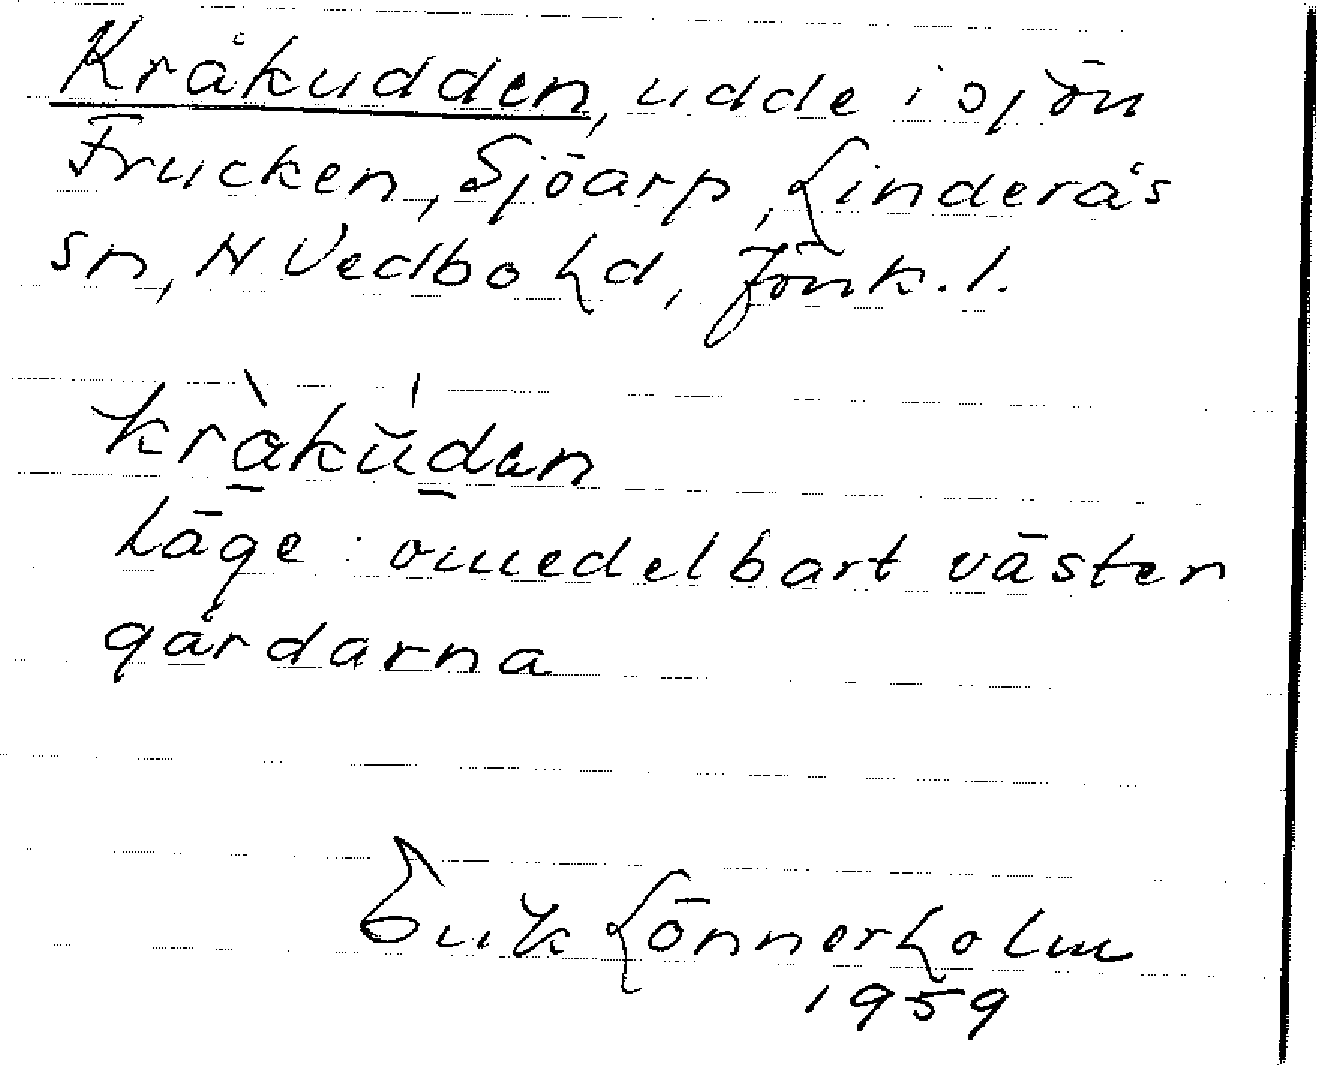 Kråkudden, udde i sjön
Frucken, Sjöarp, Linderås
sn, N Vedbo hd, Jönk. l.
kràkŭ́dan
Läge: omedelbart väster
gårdarna
Erik Lönnerholm
1959